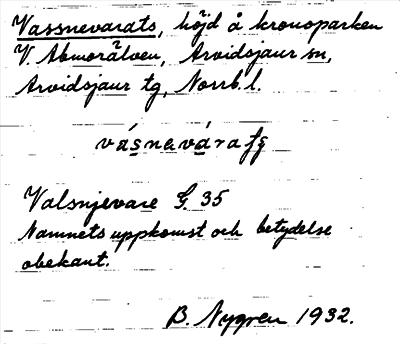 Vassnevarats, höjd å kronoparken
V. Abmorälven, Arvidsjaur sn,
Arvidsjaur tg, Norrb. l.
Valsnjevare G. 35
Namnets uppkomst och betydelse
obekant.
B. Nygren 1932.